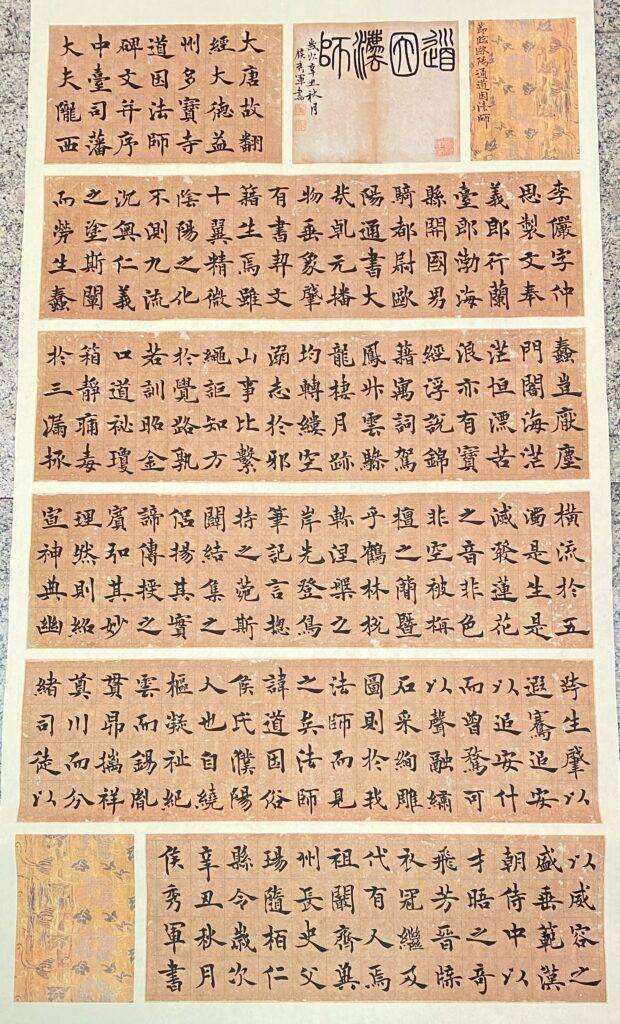 節臨歐陽通道因法師
道因法師
歲次辛丑秋月
侯秀軍書
大唐故翻
經大德益
州多寶寺
道因法師
碑文并序
中臺司藩
大夫隴西
李儼字仲
思製文奉
義郎行蘭
臺郎渤海
縣開國男
騎都尉歐
陽通書大
哉乹元播
物垂象肇
有書契文
籍生焉雖
十翼精微
陰陽之化
不測九流
沉奧仁義
之塗斯闡
而勞生蠢
蠢豈厭塵
門閣海茫
茫恒漂苦
浪亦有寶
經浮說錦
籍寓詞駕
鳳升雲驂
龍棲月跡
均轉縷空
溺志於邪
山事比繫
繩詎知方
於覺路孰
若訓昭金
口道祕瓊
箱靜彌毒
於三漏拯
橫流於五
濁是生是
滅發蓮花
之音非色
非空被稱
檀之簡暨
乎鶴林梲
軫涅槃之
岸先登鳥
筆記言摠
持之菀斯
關結集之
侶揚其實
諦傳授之
賓弘其妙
理然則紹
宣神典幽
跨生肇以
遐騫追安
以追安什
而曾騖可
以聲融繡
石采絢雕
圖則於我
法師而見
之兵法師
諱道因俗
侯氏濮陽
人也自繞
樞凝祉紀
雲而錫胤
貫昴攜祥
奠川而分
緒司徒以
以威容之
盛垂範漢
朝侍中以
才晤之奇
飛芳晉牒
衣冠繼及
代有人焉
祖闕齊奠
州長史父
瑒隨柏仁
縣令歲次
辛丑秋月
侯秀軍書